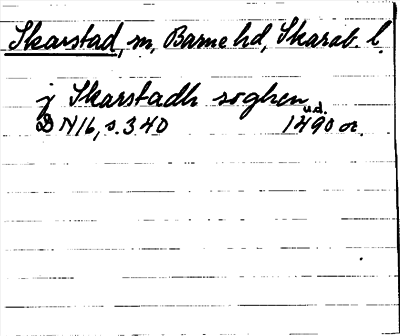 Skarstad, m, Barne hd, Skarab. l.
j Skarstadh soghen
u.d.
DN 16, s. 340 1490 or.